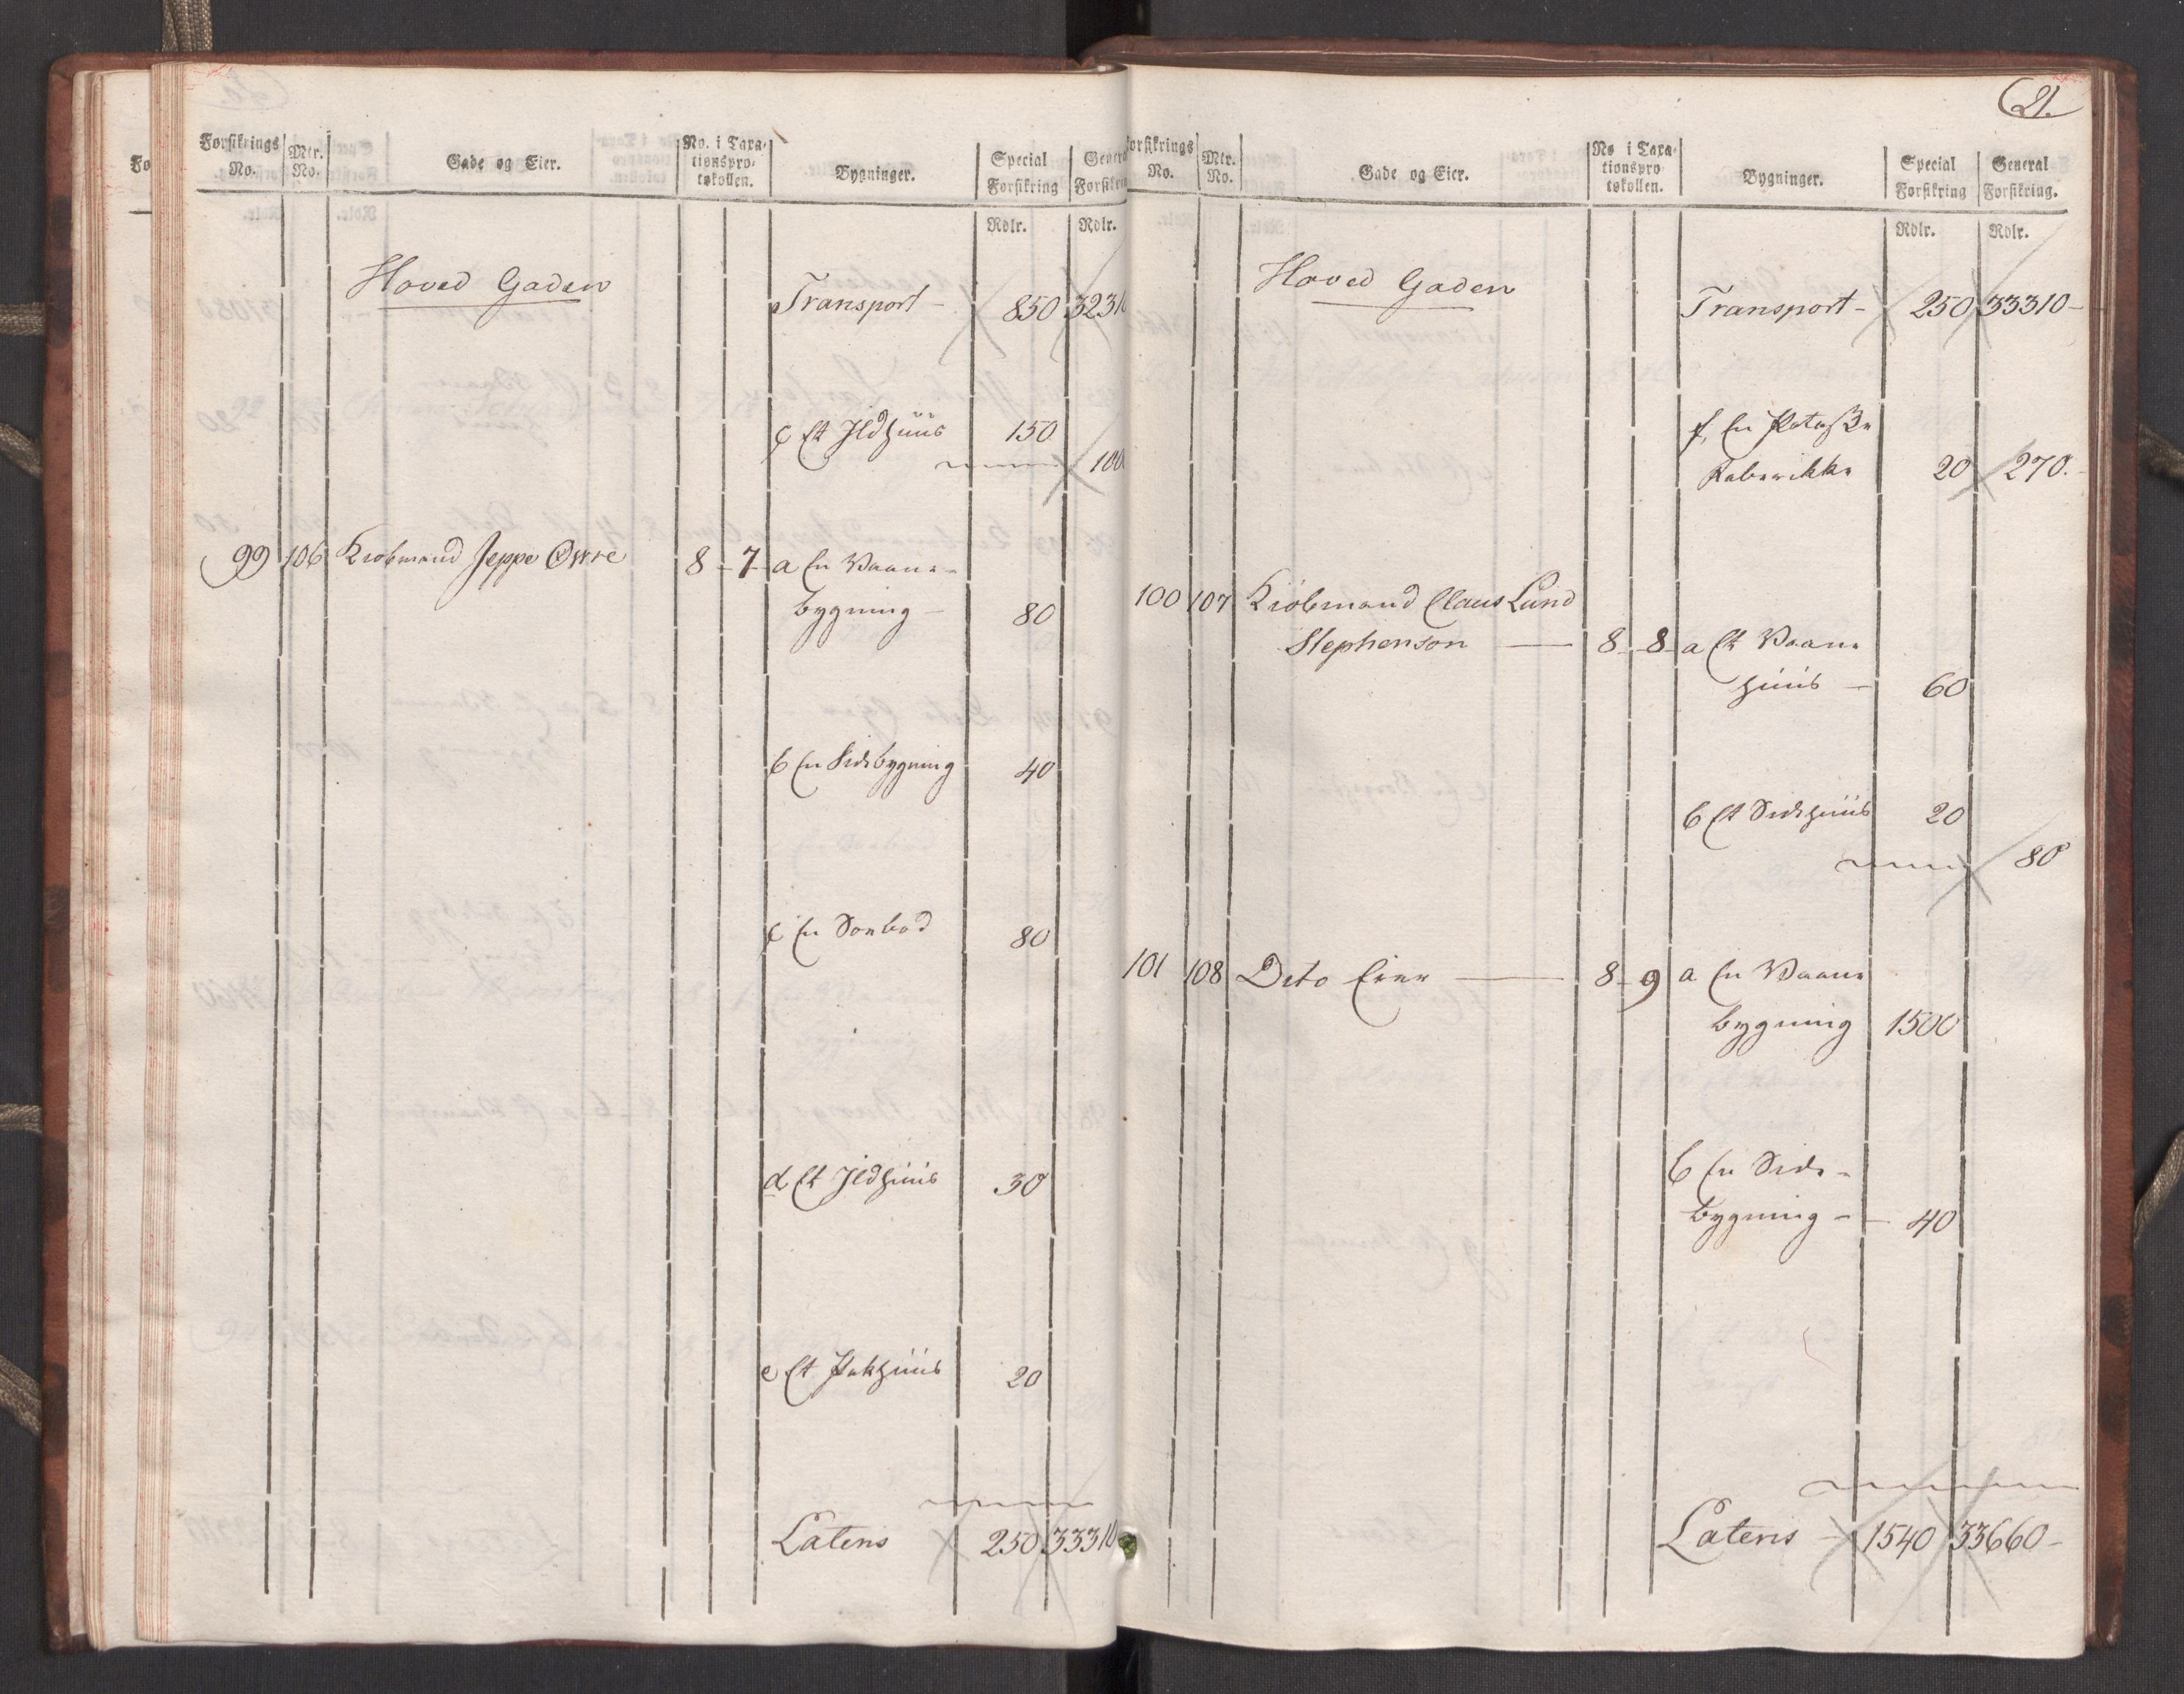 Forsikrings No.
Mtr. No.
Gade og Eier.
No. i Taxationsprotokollen.
Bygninger.
Special Forsikring
Rdlr.
Rdlr.
Hoved Gaden
Transport - 850
c Et Ildhuus 150
99 106 Kiobmand Jeppe 8 - 7 a En Vaane-
bygning - 80
b En Sidebygning 40
c En Soebod 80
d Et Ildhuus 30
e Et Pakhuus 20
Lateris 250 33310
21.
Forsikrings No.
Mtr. No.
Gade og Eier.
No i Taxationsprotokollen.
Bygninger.
Special Forsikring
General Forsikring.
Rdlr.
Rdlr.
Hoved Gaden
Transport - 250 33310 -
f, En Potaske
Faberikke 20 270.
100 107 Kiöbmand Claus Lund
Stephenson — 8 - 8 a Et Vaane
huus - 60
b Et Sidehuus 20
80
101 108 Dito Eier — 8 - 9 a En Vaane
bygning 1500
b En Side-
bygning - 40
Lateris - 1540 33660 -